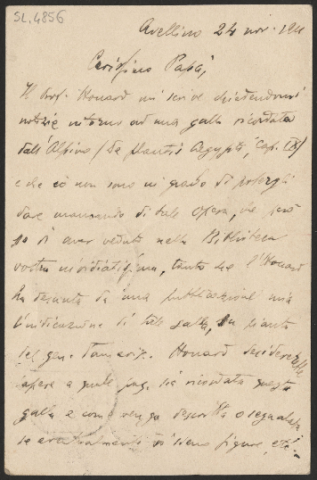 SL.4856
Avellino 24 nov. 1911
Carissimo Papa,
Il Prof. Houard mi scrive chiedendomi
notizie intorno ad una galla ricordata
dall'Alpino (De Plantis Aegypti, Cap. IX)
e che io non sono in grado di potergli
dare mancando di tale opera, che però
so di aver veduto nella Biblioteca
vostra, tanto che l'Houard
ha desunto da una pubblicazione mia
l'indicazione di tale galla, su piante
del gen. Tamarix. Houard desidererebbe
sapere a quale pag. sia ricordata questa
galla e come venga descritta o segnalata
se eventualmente vi siano figure, ecc.